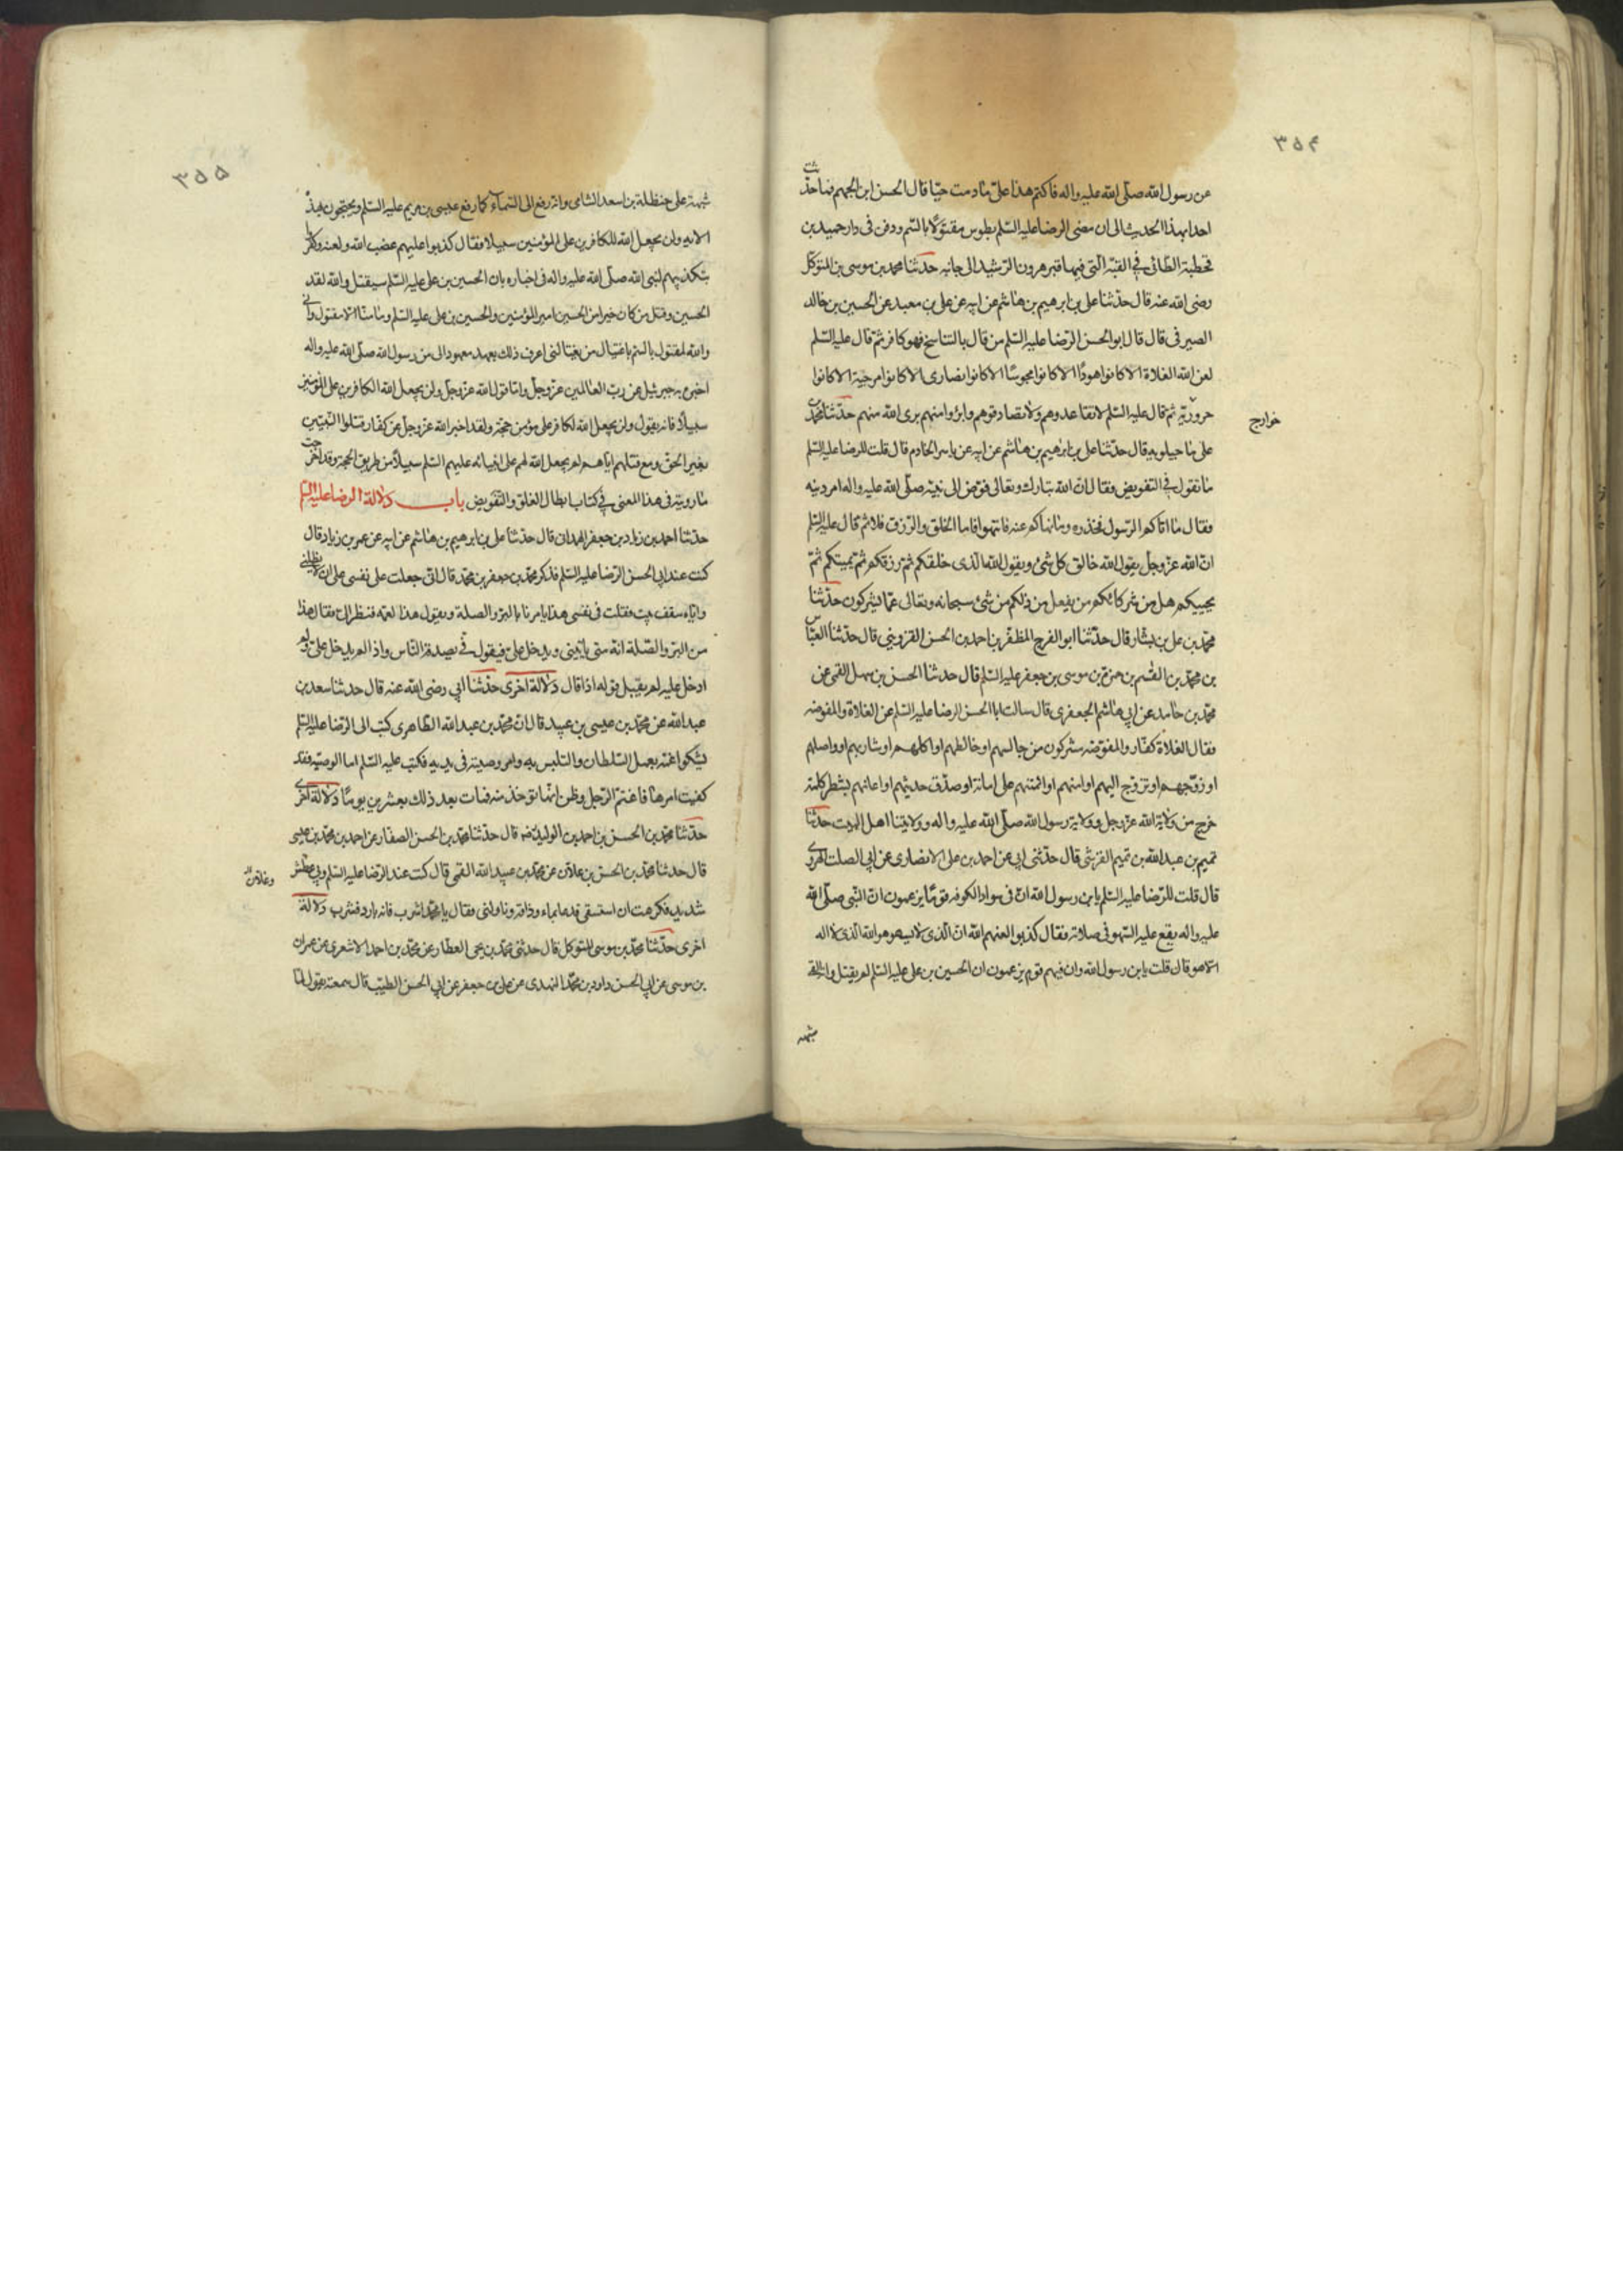 ٣٥٤
عن رسول الله صلّى الله عليه واله فاكتم هذا علىّ ما دمت حيّا قال الحسن ابن الجهم فما حدّثت
احدا بهذا الحديث الى ان مضى الرضا عليه السّلم بطوس مقتولًا بالسّم ودفن فى دار حميد بن
قحطبة الطائى فى القبّة الّتى فيها قبر هرون الرّشيد الى جانبه حدّثنا محمد بن موسى بن المتوكّل
رضى الله عنه قال حدّثنا على بن ابرهيم بن هاشم عن ابيه عن على بن معبد عن الحسين بن خالد
الصيرفى قال قال ابو الحسن الرّضا عليه السّلم من قال بالتناسخ فهو كافر ثمّ قال عليه السّلم
لعن الله الغلاة الا كانوا هودًا الا كانوا مجوسًا الا كانوا نصارى الا كانوا مرجية الا كانوا
حروريّة ثم قال عليه السّلم لا تقاعدوهم ولا تصادقوهم وابرؤا منهم برى الله منهم حدّثنا محمّد بن
خوارج
على ماجيلويه قال حدّثنا على بن ابرهيم بن هاشم عن ابيه عن ياسر الخادم قال قلت للرضا عليه السّلم
ما تقول فى التفويض فقال انّ الله تبارك وتعالى فوّض الى نبيّه صلّى الله عليه واله امر دينه
فقال ما اتاكم الرّسول فخذوه وما نهاكم عنه فانتهوا فاما الخلق والرّزق فلا ثم قال عليه السّلم
انّ الله عزّ وجلّ يقول الله خالق كل شئ ويقول الله الّذى خلقكم ثمّ رزقكم ثم يميتكم ثمّ
يحييكم هل من شركائكم من يفعل من ذلكم من شئ سبحانه وتعالى عمّا يشركون حدّثنا
محمّد بن على بن بشّار قال حدّثنا ابو الفرج المظفّر بن احمد بن الحسن القزوينى قال حدّثنا العبّاس
بن محمّد بن القسم بن حمزة بن موسى بن جعفر عليه السّلم قال حدثنا الحسن بن سهل القمى عن
محمّد بن حامد عن ابى هاشم الجعفرى قال سالت ابا الحسن الرضا عليه السّلم عن الغلاة والمفوضه
فقال الغلاة كفّار والمفوّضه مشركون من جالسهم او خالطهم او اكلهم او شاربهم او واصلهم
او زوّجهم او تزوج اليهم او امنهم او ائتمنهم على امانة او صدّق حديثهم او اعانهم بشطر كلمة
خرج من ولاية الله عزّ وجل وولاية رسول الله صلّى الله عليه واله وولايتنا اهل البيت حدّثنا
تميم بن عبد الله بن تميم القرشى قال حدّثنى ابى عن احمد بن على الانصارى عن ابى الصلت الهروى
قال قلت للرّضا عليه السّلم يا بن رسول الله انّ فى سواد الكوفه قومًا يزعمون انّ النّبى صلّى الله
عليه واله يقع عليه السّهو فى صلاته فقال كذبوا لعنهم الله انّ الّذى لا يسهو هو الله الّذى لا اله
الّا هو قال قلت يا بن رسول الله وان فيهم قوم يزعمون ان الحسين بن على عليه السّلم لم يقتل وانه القى
شبهه
٣٥٥
شبهته على حنظلة بن اسعد الشامى وانّه رفع الى السّماء كما رفع عيسى بن مريم عليه السّلم ويحتجون بهذه
الاية ولن يجعل الله للكافرين على المؤمنين سبيلا فقال كذبوا عليهم غضب الله ولعنه وكفروا
بتكذيبهم لنبى الله صلّى الله عليه واله فى اخباره بان الحسين بن على عليه السّلم سيقتل والله لقد قتل
الحسين وقتل من كان خيرا من الحسين امير المؤمنين والحسين بن على عليه السّلم وما منّا الّا مقتول وانّى
والله لمقتول بالسّم باغتيال من يغتالنى اعرف ذلك بعهد معهود الى من رسول الله صلّى الله عليه واله
اخبره به جبرئيل عن ربّ العالمين عزّ وجلّ وامّا قول الله عزّ وجلّ ولن يجعل الله الكافرين على المؤمنين
سبيلًا فانه يقول ولن يجعل الله لكافر على مؤمن حجّة ولقد اخبر الله عزّ وجلّ عن كفّار قتلوا النّبيّين
بغير الحقّ ومع قتلهم ايّاهم لم يجعل الله لهم على انبيائه عليهم السّلم سبيلًا من طريق الحجة وقد اخرجت
ما رويته فى هذا المعنى فى كتاب ابطال الغلق والتّفويض باب دلالة الرضا عليه السّلم
حدّثنا احمد بن زياد بن جعفر الهمدانى قال حدّثنا على بن ابرهيم بن هاشم عن ابيه عن عمر بن زياد قال
كنت عند ابى الحسن الرّضا عليه السّلم فذكر محمّد بن جعفر بن محمّد قال انّى جعلت على نفسى على ان لا يظلنى
وايّاه سقف بيت فقلت فى نفسى هذا يامرنا بالبرّ والصلة ويقول هذا لعمّه فنظر الىّ فقال هذا
من البرّ والصّلة انّه متى ياتينى ويدخل علىّ فيقول فىّ يصدّقه النّاس واذا لم يدخل علىّ ولم
ادخل عليه لم يقبل قوله اذا قال دلالة اخرى حدّثنا ابى رضى الله عنه قال حدثنا سعد بن
عبد الله عن محمّد بن عيسى بن عبيد قال انّ محمّد بن عبد الله الطّاهرى كتب الى الرّضا عليه السّلم
يشكوا عمّه بعمل السّلطان والتلبس به وامر وصيّته فى يديه فكتب عليه السّلم اما الوصيّه فقد
كفيت امرها فاغتمّ الرّجل وظن انّها تؤخذ منه فمات بعد ذلك بعشرين يومًا دلالة اخرى
حدّثنا محمّد بن الحسن بن احمد بن الوليد رضه قال حدّثنا محمّد بن الحسن الصفّار عن احمد بن محمّد بن عيسى
قال حدثنا محمّد بن الحسن بن علان عن محمّد بن عبيد الله القمى قال كنت عند الرّضا عليه السّلم وبى عطش
شديد فكرهت ان استسقى فدعا بماء وذاقه وناولنى فقال يا محمّد اشرب فانه بارد فشرب دلالة
اخرى حدّثنا محمّد بن موسى المتوكل قال حدثنى محمّد بن يحيى العطّار عن محمّد بن احمد الاشعرى عن عمران
بن موسى عن ابى الحسن داود بن محمّد النهدى عن على بن جعفر عن ابى الحسن الطيّب قال سمعته يقول لمّا